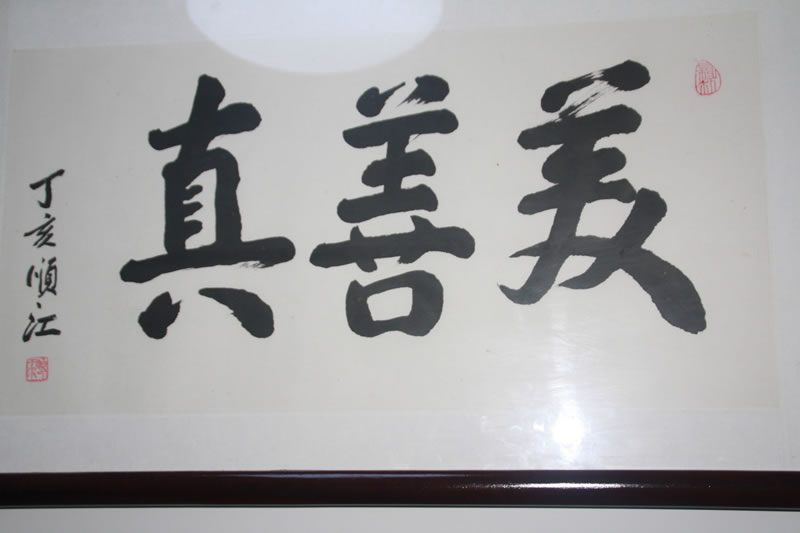 美善真
丁亥顺江